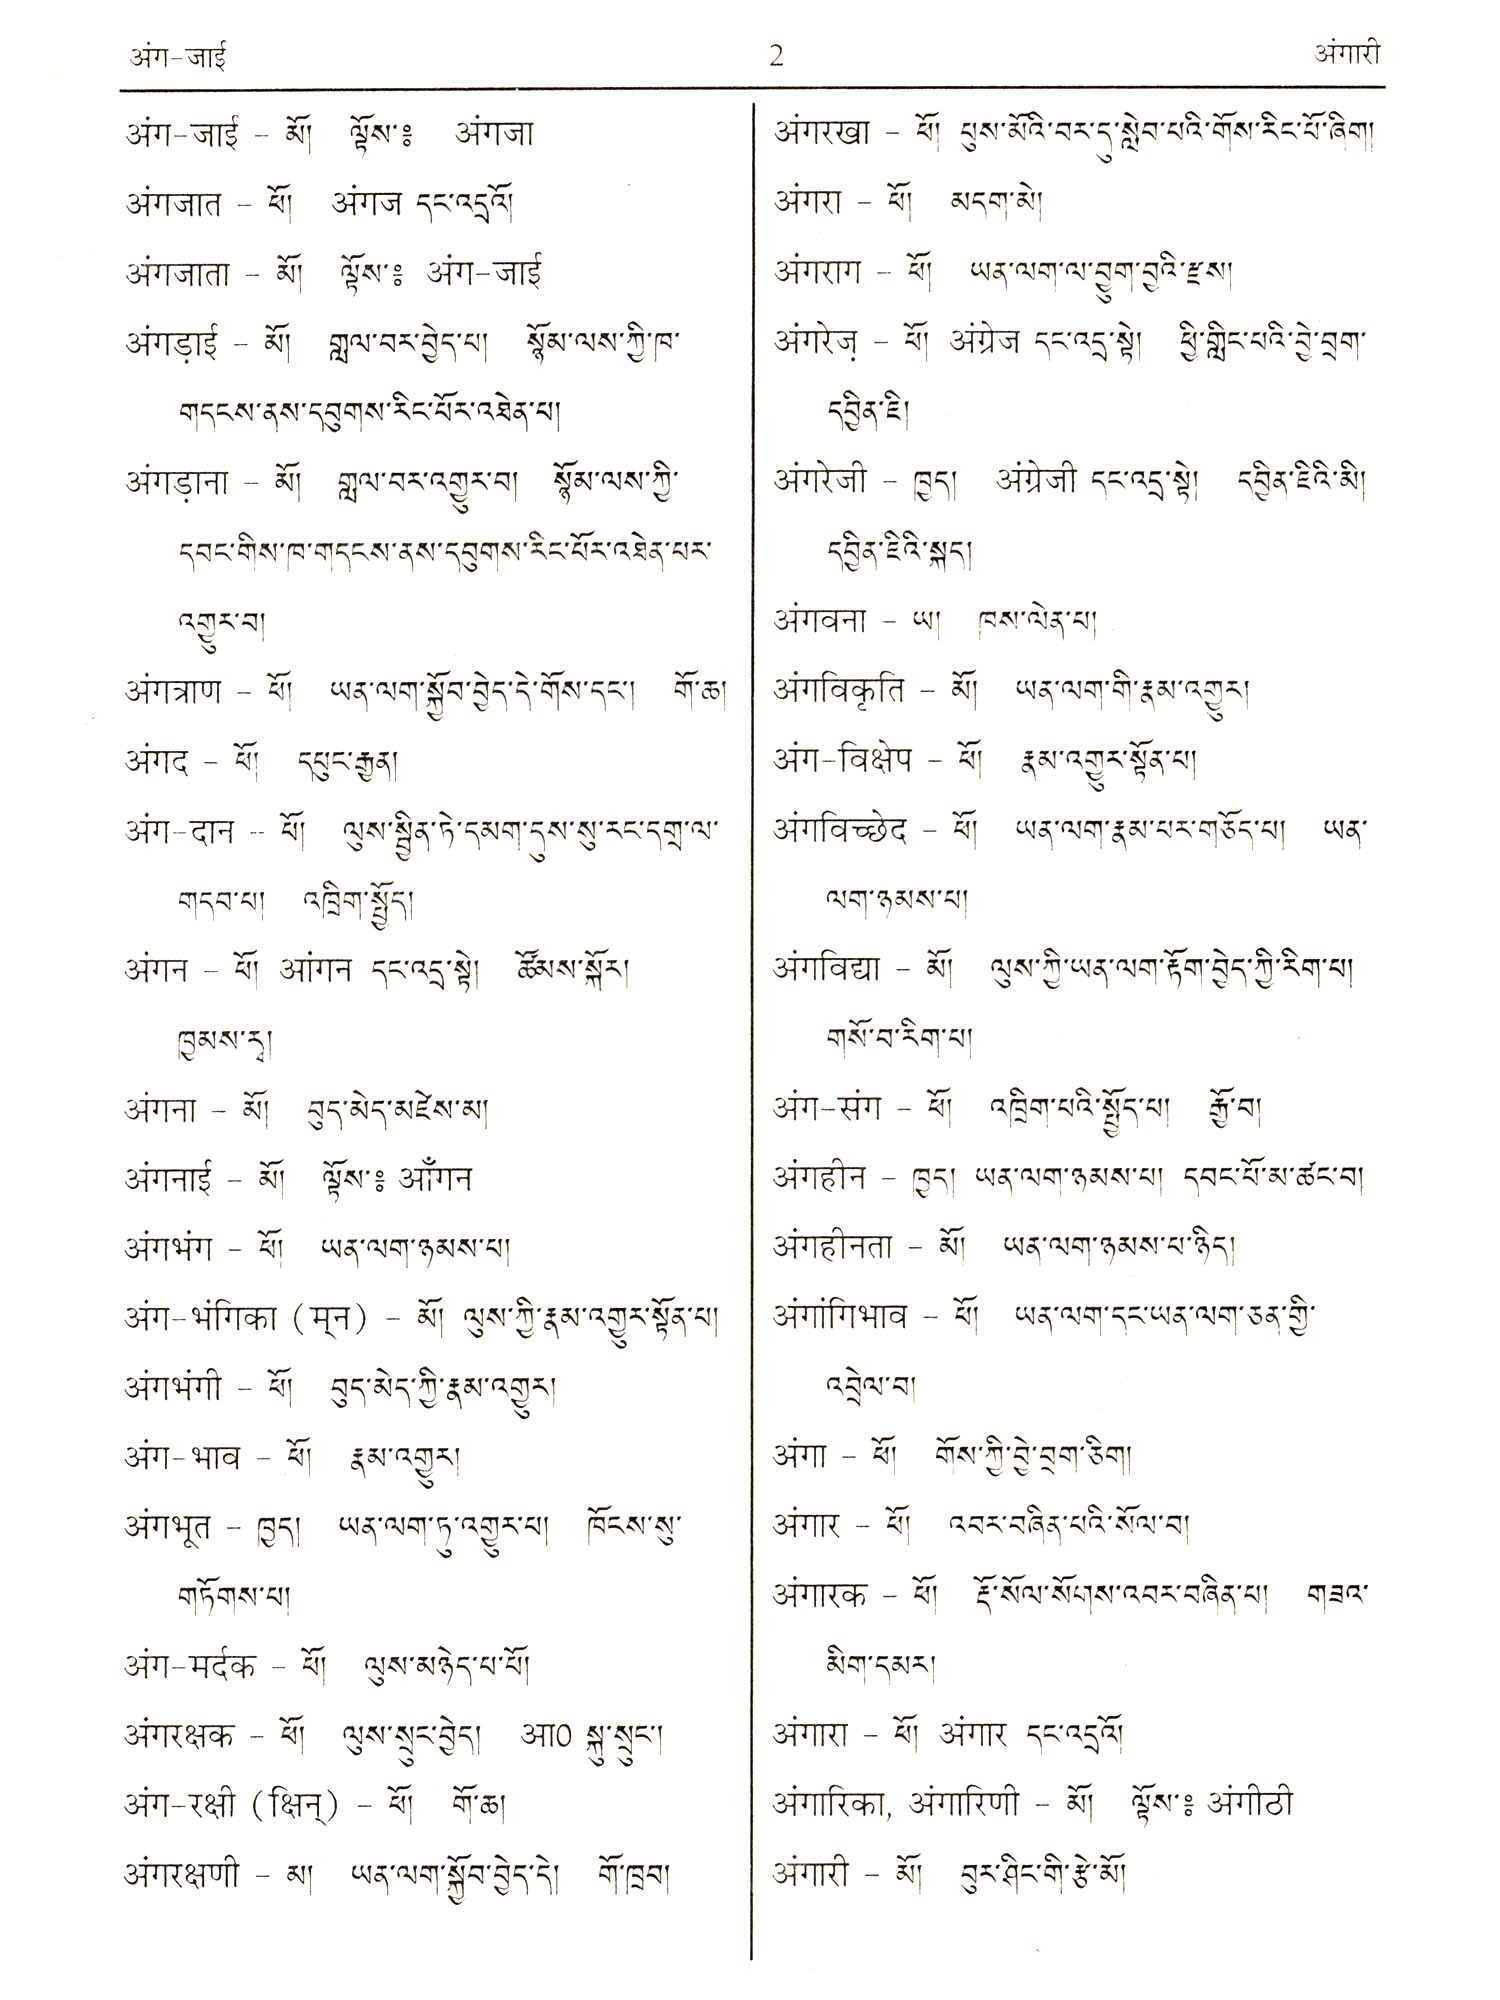 अंग-जाई 2 अंगारी
अंग-जाई - མོ། ལྟོས་ঃ अंगजा
अंगजात - ཕོ། अंगज དང་འདྲའོ།
अंगजाता - མོ། ལྟོས་ঃ अंग-जाई
अंगड़ाई - མོ། གླལ་བར་བྱེད་པ། སྙོམ་ལས་ཀྱི་ཁ་
གདངས་ནས་དབུགས་རིང་པོར་འཐེན་པ།
अंगड़ाना - མོ། གླལ་བར་འགྱུར་བ། སྙོམ་ལས་ཀྱི་
དབང་གིས་ཁ་གདངས་ནས་དབུགས་རིང་པོར་འཐེན་པར་
འགྱུར་བ།
अंगत्राण - ཕོ། ཡན་ལག་སྐྱོབ་བྱེད་དེ་གོས་དང་། གོ་ཆ།
अंगद - ཕོ། དཔུང་རྒྱན།
अंग-दान - ཕོ། ལུས་སྦྱིན་ཏེ་དམག་དུས་སུ་རང་དགྲ་ལ་
གདབ་པ། འཁྲིག་སྤྱོད།
अंगन - ཕོ། आंगन དང་འདྲ་སྟེ། ཚོམས་སྐོར།
ཁྱམས་རྭ།
अंगना - མོ། བུད་མེད་མཛེས་མ།
अंगनाई - མོ། ལྟོས་ঃ आँगन
अंगभंग - ཕོ། ཡན་ལག་ཉམས་པ།
अंग-भंगिका (म्न) - མོ། ལུས་ཀྱི་རྣམ་འགྱུར་སྟོན་པ།
अंगभंगी - ཕོ། བུད་མེད་ཀྱི་རྣམ་འགྱུར།
अंग-भाव - ཕོ། རྣམ་འགྱུར།
अंगभूत - ཁྱད། ཡན་ལག་ཏུ་འགྱུར་པ། ཁོངས་སུ་
གཏོགས་པ།
अंग-मर्दक - ཕོ། ལུས་མཉེད་པ་པོ།
अंगरक्षक - ཕོ། ལུས་སྲུང་བྱེད། आ० སྐུ་སྲུང་།
अंग-रक्षी (क्षिन्) - ཕོ། གོ་ཆ།
अंगरक्षणी - མ། ཡན་ལག་སྐྱོབ་བྱེད་དེ། གོ་ཁྲབ།
अंगरखा - ཕོ། པུས་མོའི་བར་དུ་སླེབ་པའི་གོས་རིང་པོ་ཞིག།
अंगरा - ཕོ། མདག་མེ།
अंगराग - ཕོ། ཡན་ལག་ལ་བྱུག་བྱའི་རྫས།
अंगरेज़ - ཕོ། अंग्रेज དང་འདྲ་སྟེ། ཕྱི་གླིང་པའི་བྱེ་བྲག་
དབྱིན་ཇི།
अंगरेजी - ཁྱད། अंग्रेजी དང་འདྲ་སྟེ། དབྱིན་ཇིའི་མི།
དབྱིན་ཇིའི་སྐད།
अंगवना - ཡ། ཁས་ལེན་པ།
अंगविकृति - མོ། ཡན་ལག་གི་རྣམ་འགྱུར།
अंग-विक्षेप - ཕོ། རྣམ་འགྱུར་སྟོན་པ།
अंगविच्छेद - ཕོ། ཡན་ལག་རྣམ་པར་གཅོད་པ། ཡན་
ལག་ཉམས་པ།
अंगविद्या - མོ། ལུས་ཀྱི་ཡན་ལག་རྟོག་བྱེད་ཀྱི་རིག་པ།
གསོ་བ་རིག་པ།
अंग-संग - ཕོ། འཁྲིག་པའི་སྤྱོད་པ། རྒྱོ་བ།
अंगहीन - ཁྱད། ཡན་ལག་ཉམས་པ། དབང་པོ་མ་ཚང་བ།
अंगहीनता - མོ། ཡན་ལག་ཉམས་པ་ཉིད།
अंगांगिभाव - ཕོ། ཡན་ལག་དང་ཡན་ལག་ཅན་གྱི་
འབྲེལ་བ།
अंगा - ཕོ། གོས་ཀྱི་བྱེ་བྲག་ཅིག།
अंगार - ཕོ། འབར་བཞིན་པའི་སོལ་བ།
अंगारक - ཕོ། རྡོ་སོལ་སོགས་འབར་བཞིན་པ། གཟའ་
མིག་དམར།
अंगारा - ཕོ། अंगार དང་འདྲའོ།
अंगारिका, अंगारिणी - མོ། ལྟོས་ঃ अंगीठी
अंगारी - མོ། བུར་ཤིང་གི་རྩེ་མོ།